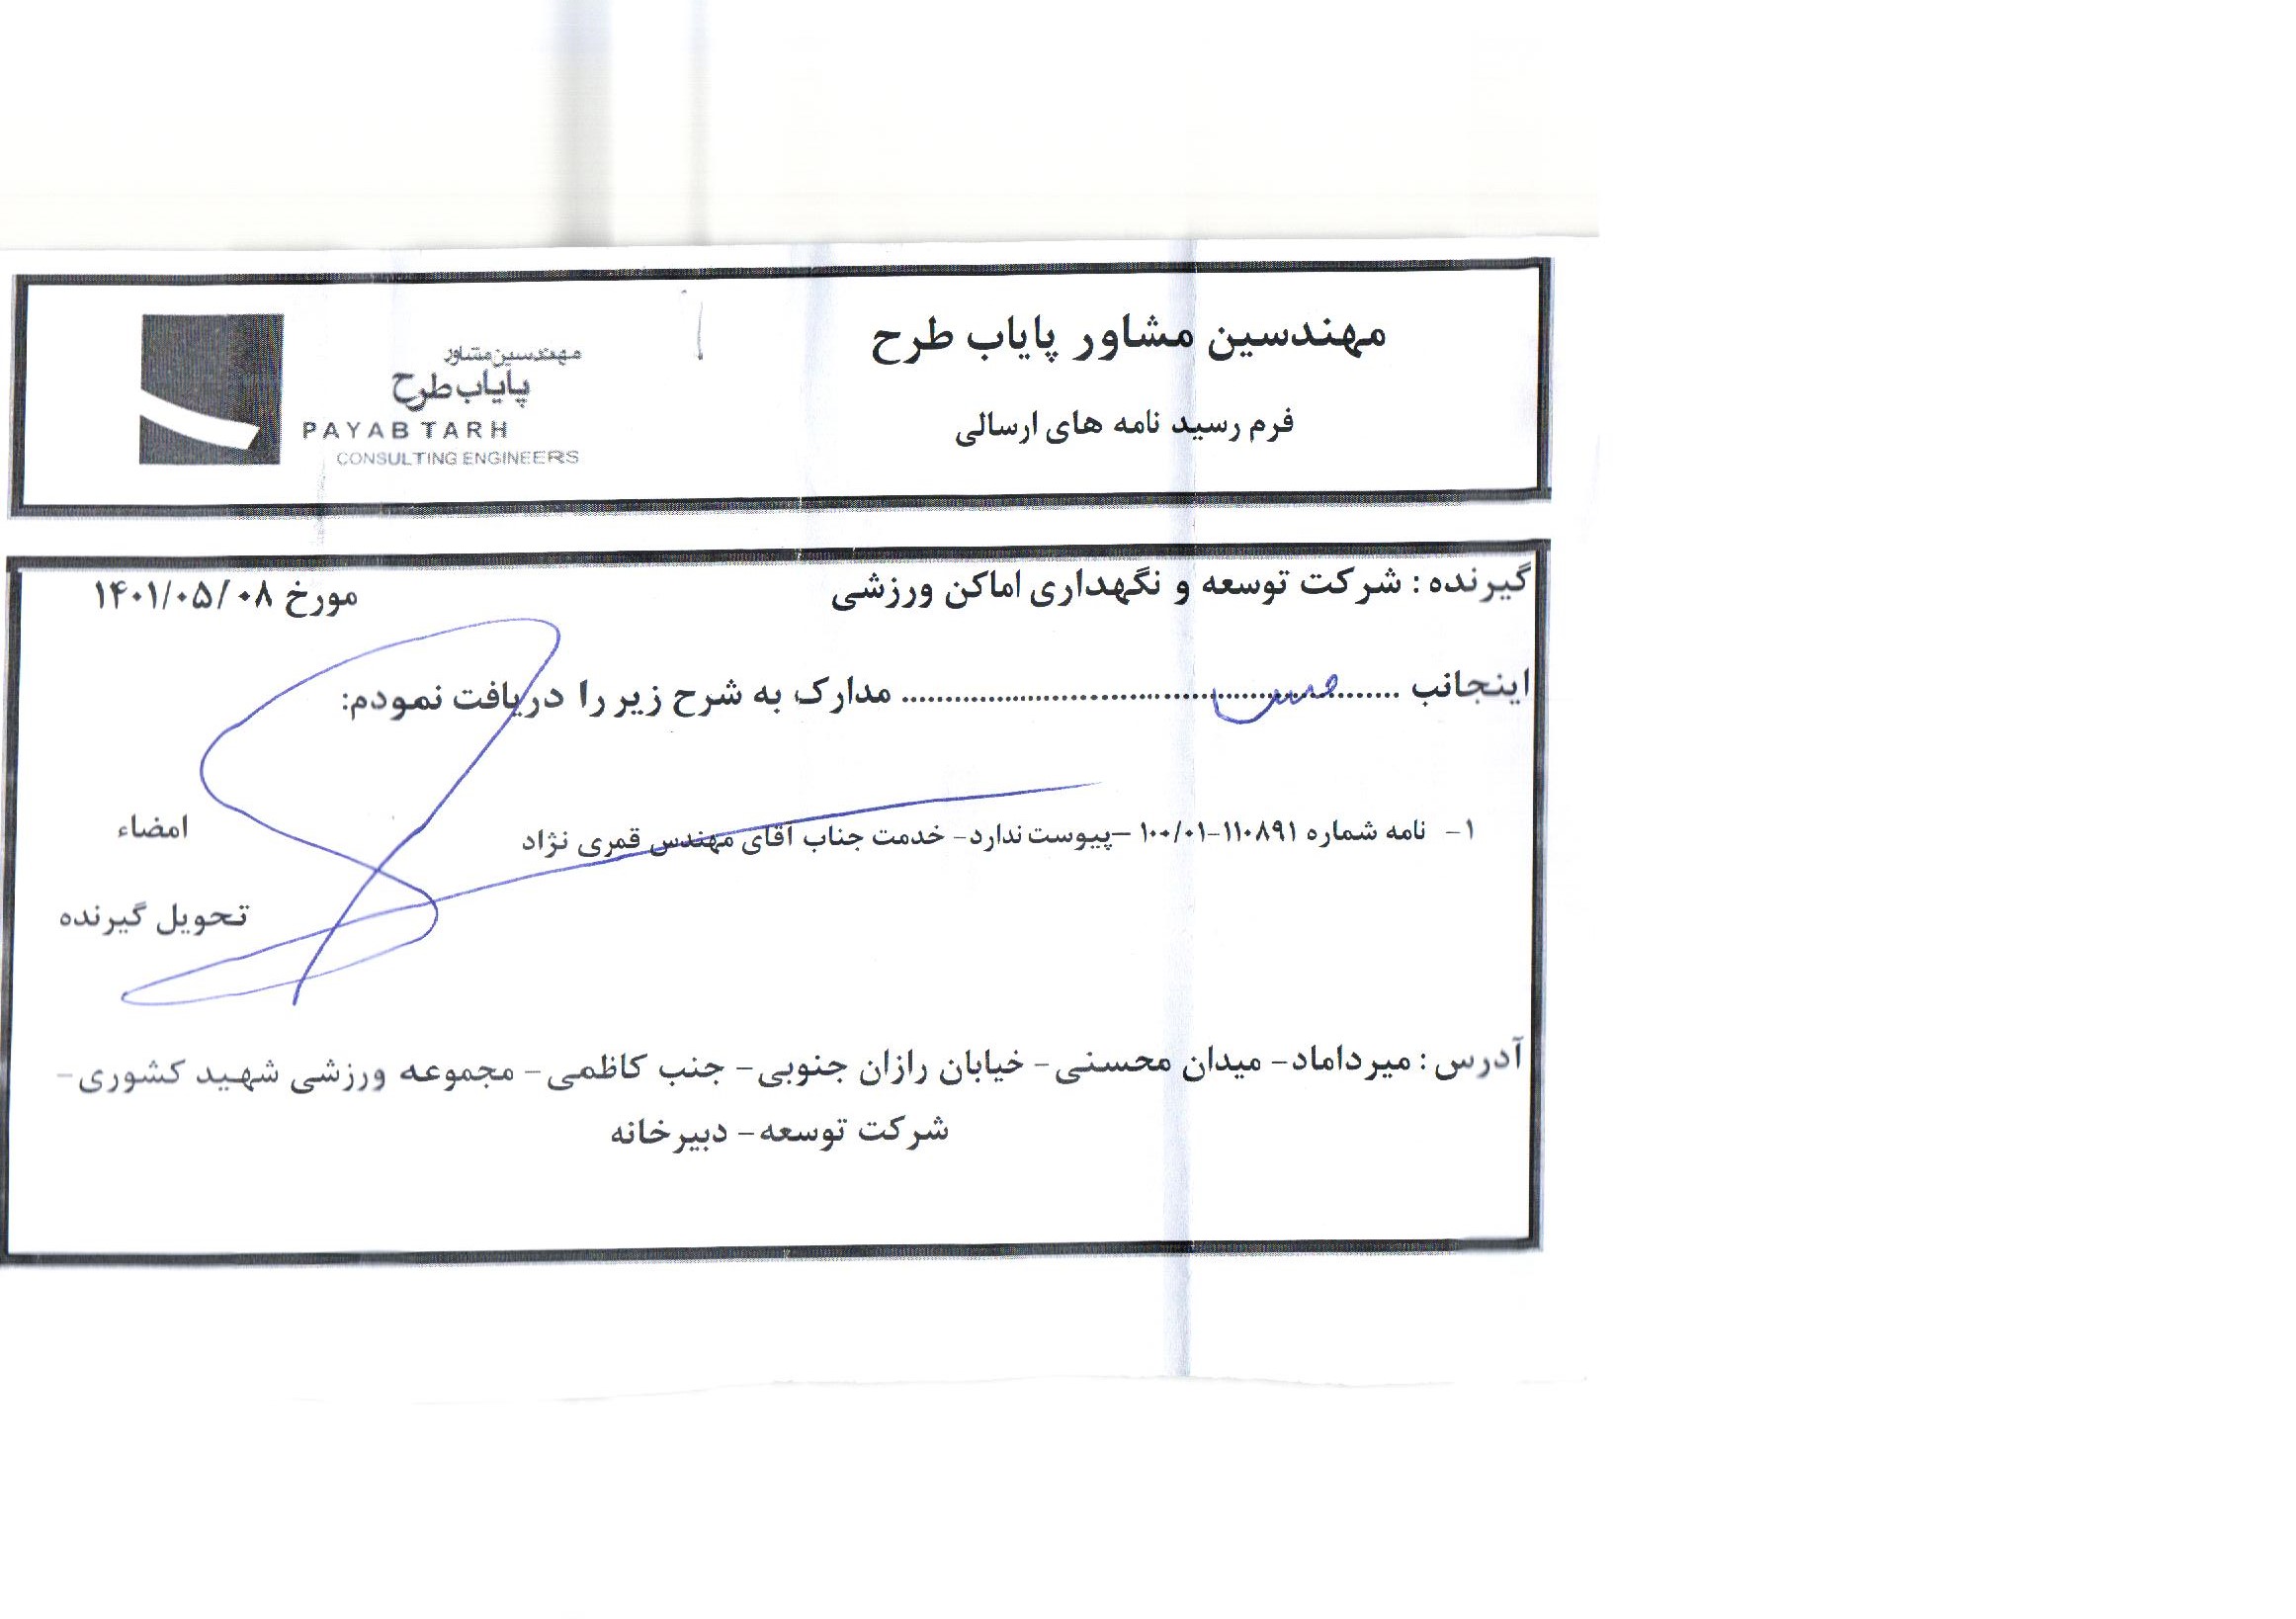 مهندسین مشاور پایاب طرح
فرم رسید نامه های ارسالی
مهندسین مشاور
پایاب طرح
PAYAB TARH
CONSULTING ENGINEERS
گیرنده : شرکت توسعه و نگهداری اماکن ورزشی
مورخ ۱۴۰۱/۰۵/۰۸
اینجانب .................................................... مدارک به شرح زیر را دریافت نمودم:
۱- نامه شماره ۱۱۰۸۹۱-۱۰۰/۰۱ –پیوست ندارد- خدمت جناب آقای مهندس قمری نژاد
امضاء
تحویل گیرنده
آدرس : میرداماد- میدان محسنی- خیابان رازان جنوبی- جنب کاظمی- مجموعه ورزشی شهید کشوری-
شرکت توسعه- دبیرخانه